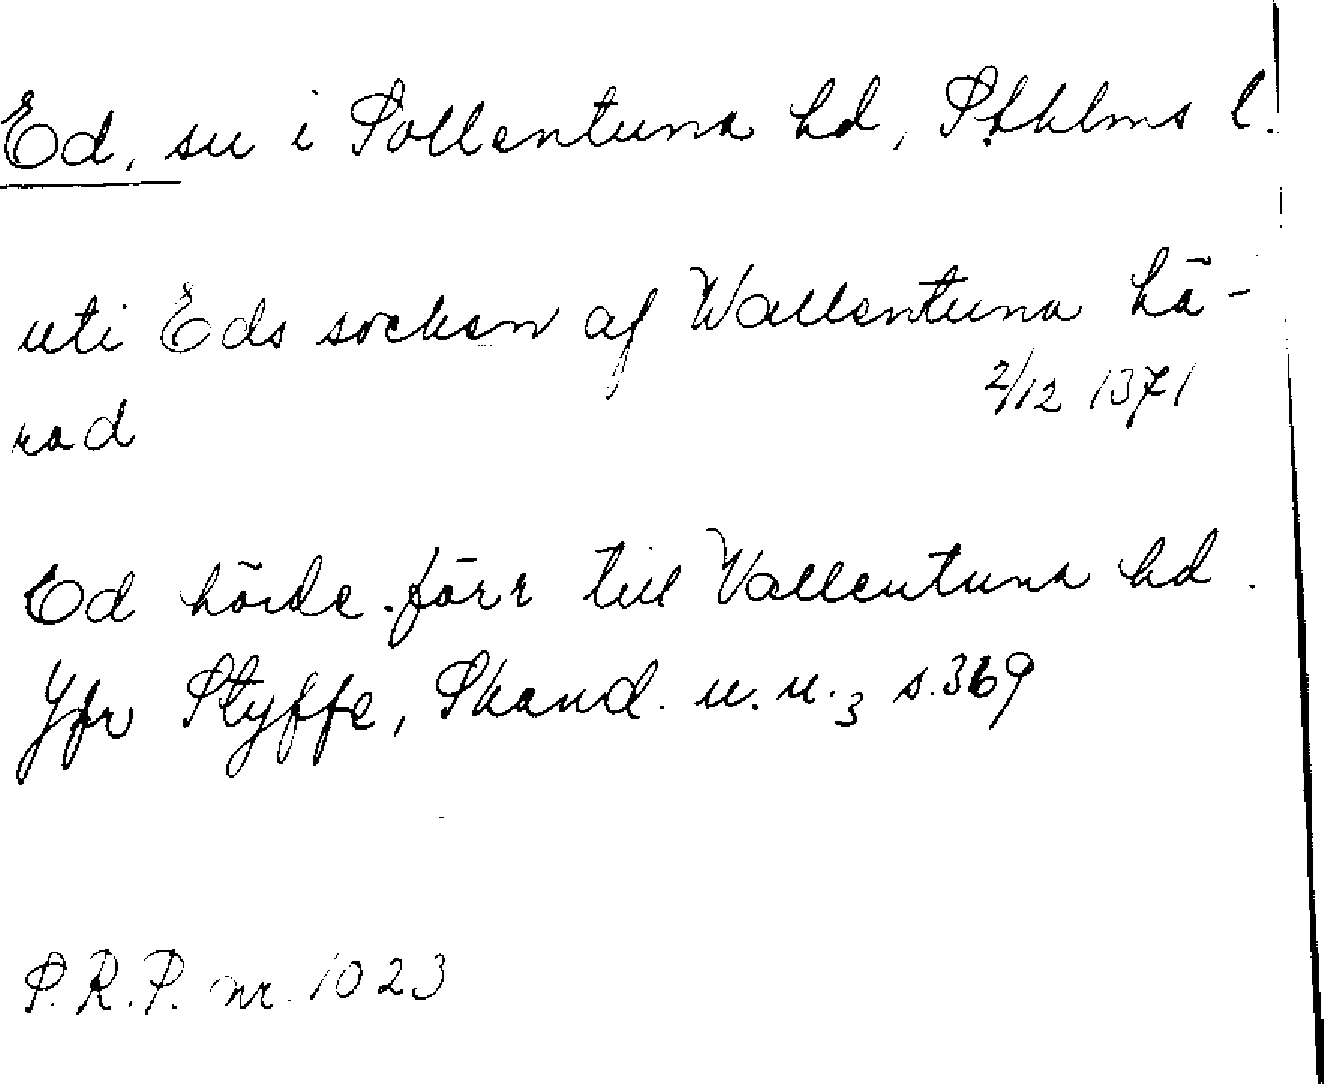 Ed, sn i Sollentuna hd, Sthlms l.
uti Eds socken af Wallentuna hä-
2/12 1371
rad
Ed hörde förr till Vallentuna hd.
Jfr Styffe, Skand. u. u. 3 s. 369
S.R.P. nr. 1023